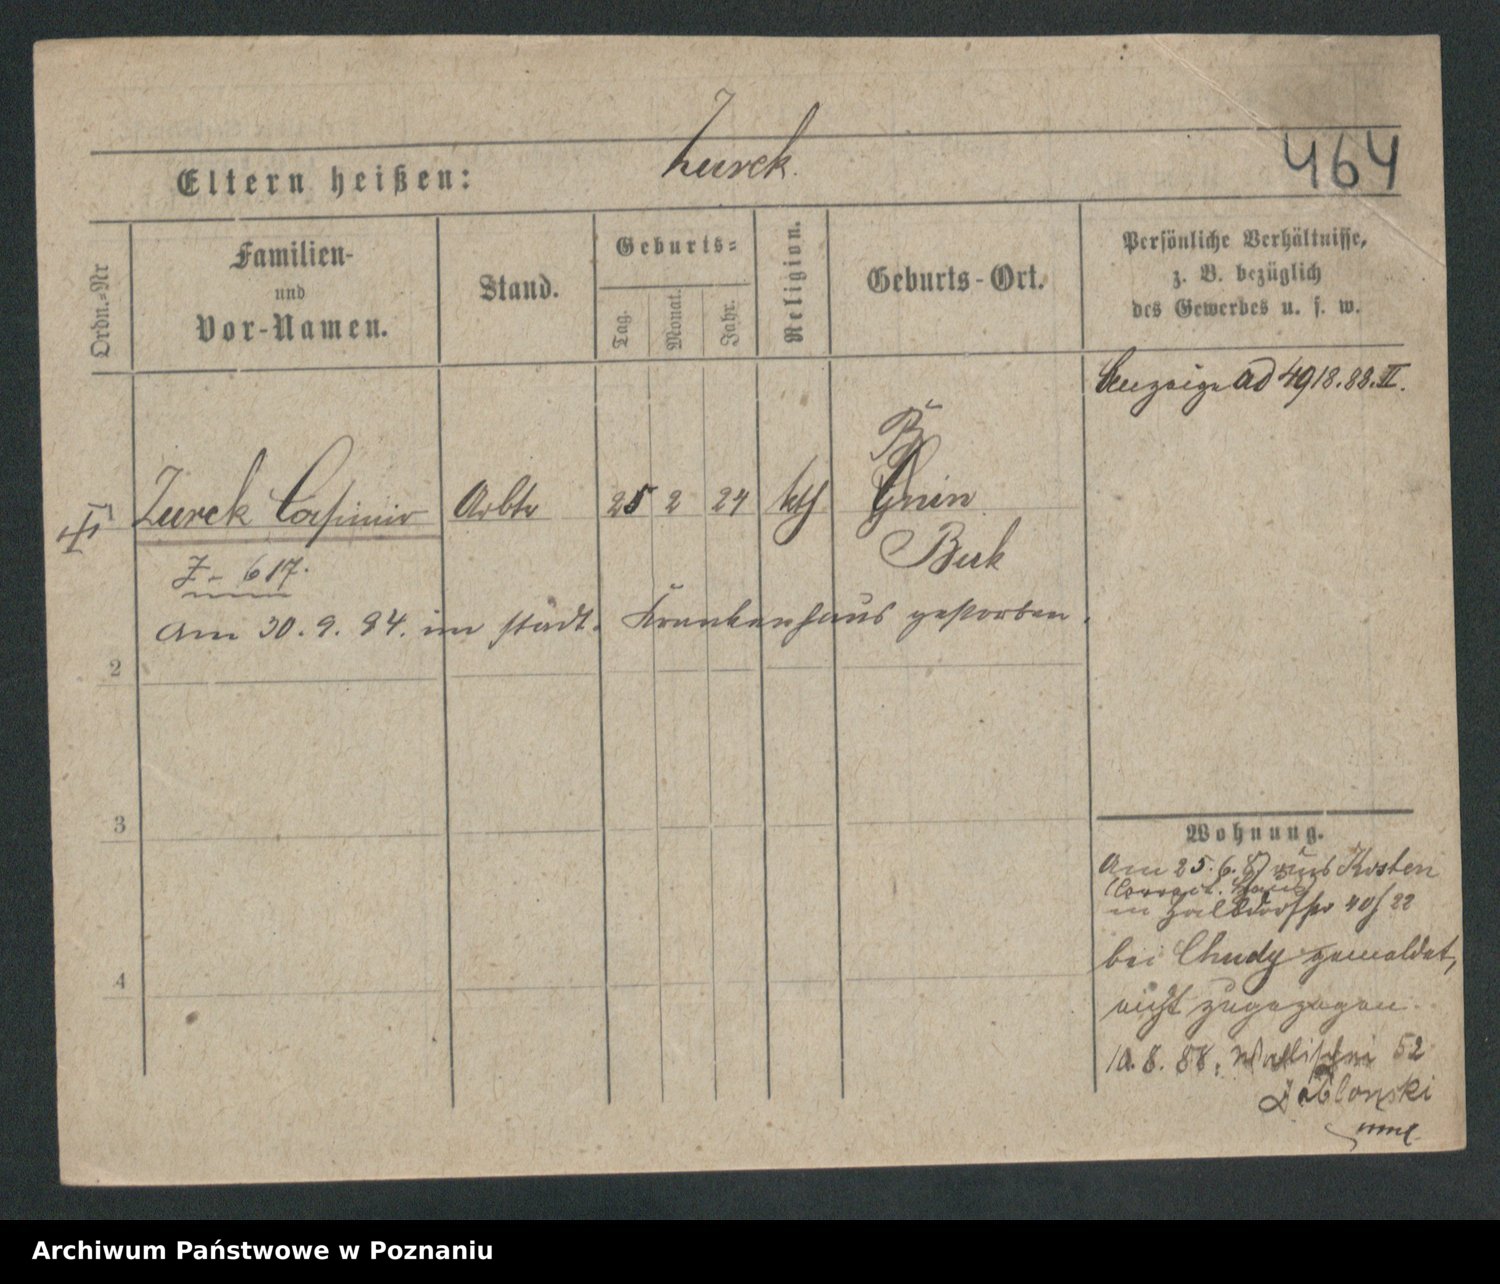 Zurek.
464
Eltern heißen:
Ordn.-Nr
Familien-
und
Vor-Namen.
Stand.
Geburts-
Tag.
Monat.
Jahr.
Religion.
Geburts-Ort.
Persönliche Verhältnisse,
z. B. bezüglich
des Gewerbes u. s. w.
ad 4918.88.II.
Zurek Casimir Arbtr 25 2 24 kth Gnin
Buk
Z - 617.
Am 30. 9. 94. im städt. Krankenhaus gestorben.
2
3
4
Wohnung.
Am 25. 6. 87 aus Kosten
in Halbdorfstr 40/22
bei Chudy gemeldet,
nicht zugezogen.
10. 8. 88. Wallischei 52
Jablonski